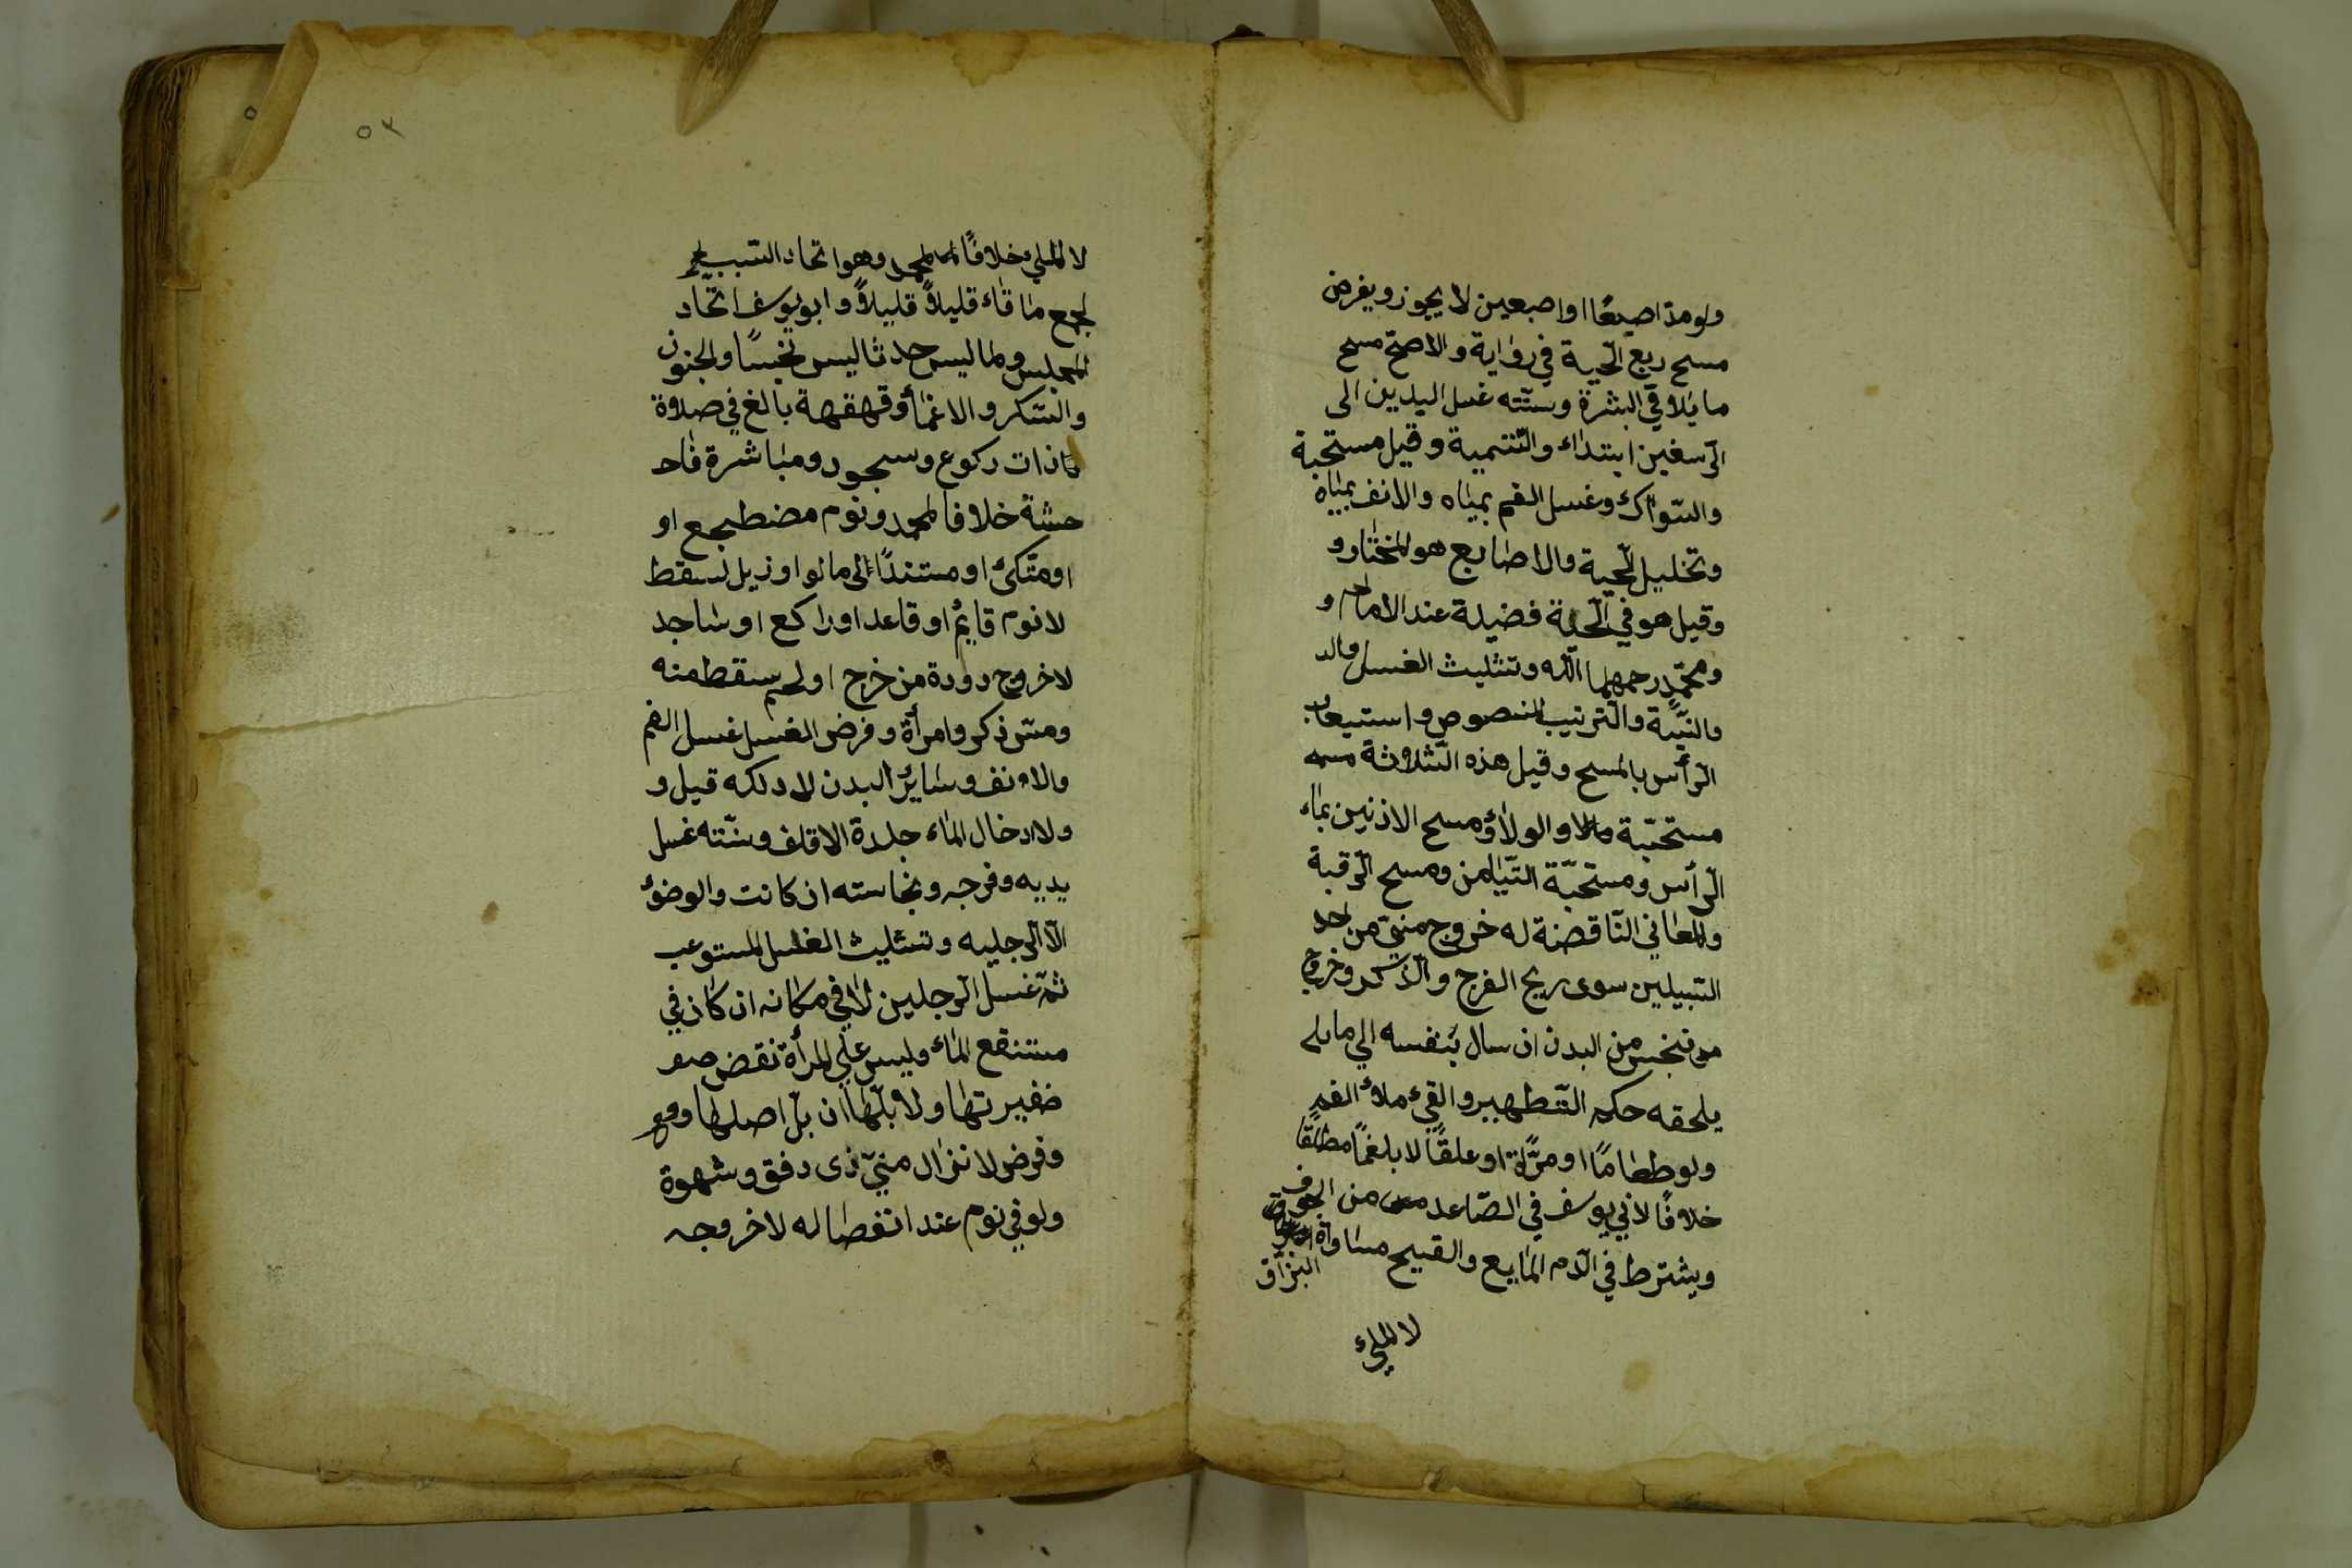 ولو مدّ اصبعًا او اصبعين لا يجوز ويفرض
مسح ربع الّحية في رواية والاصحّ مسح
ما يلاقي البشرة وسنّته غسل اليدين الى
الرّسغين ابتداء والتّسمية وقيل مستحبة
والسّواك وغسل الفم بمياه والانف بمياه
وتخليل الّحية والاصابع هو المختار و
وقيل هو في الّحية فضيلة عند الامام و
ومحمّد رحمهما اللّه وتثليث الغسل
والنّيّة والتّرتيب المنصوص واستيعاب
الرّأس بالمسح وقيل هذه الثّلاثة
مستحبّة والولاؤ ومسح الاذنين بماء
الرّأس ومستحبّة التّيامن ومسح الرّقبة
والمعاني النّاقضة له خروج من احد
السّبيلين سوى ريح الفرج والذّكر وخروج
نجس من البدن ان سال بنفسه الي ما
يلحقه حكم التّطهير والقيء ملأ الفم
ولو طعامًا او مرّة او علقًا لا بلغمًا مطلقًا
خلافًا لابي يوسف في الصّاعد من الجوف
ويشترط في الدّم المايع والقيح مساواة
البزاق
لا الملء
٥٢
لا الملء خلافًا لمحمد وهو اتحاد السّبب
لجمع ما قاء قليلاً قليلاً وابو يوسف اتّحاد
المجلس وما ليس حدثا ليس نجسًا والجنون
والسّكر والاغمأ وقهقهة بالغ في صلاة
ذات ركوع وسجود ومباشرة فاحـ
حشة خلافا لمحمد ونوم مضطجع او
او متّكئ او مستندًا الى ما لو ازيل لسقط
لا نوم قايم او قاعد او راكع او ساجد
لا خروج دودة من جرح او لحم سقط منه
ومسّ ذكر وامرأة وفرض الغسل غسل الفم
والانف وساير البدن لا دلكه قيل و
ولا ادخال الماء جلدة الاقلف وسنّته غسل
يديه وفرجه ونجاسته ان كانت والوضؤ
الّا الرّجليه وتثليث الغسل المستوعب
ثمّ غسل الرّجلين لا في مكانه ان كان في
مستنقع الماء وليس علي المرأة نقض
ضفيرتها ولا بلّها ان بلّ اصلها
وفرض لانزال منيّ ذى دفق وشهوة
ولو في نوم عند انفصاله لا خروجه